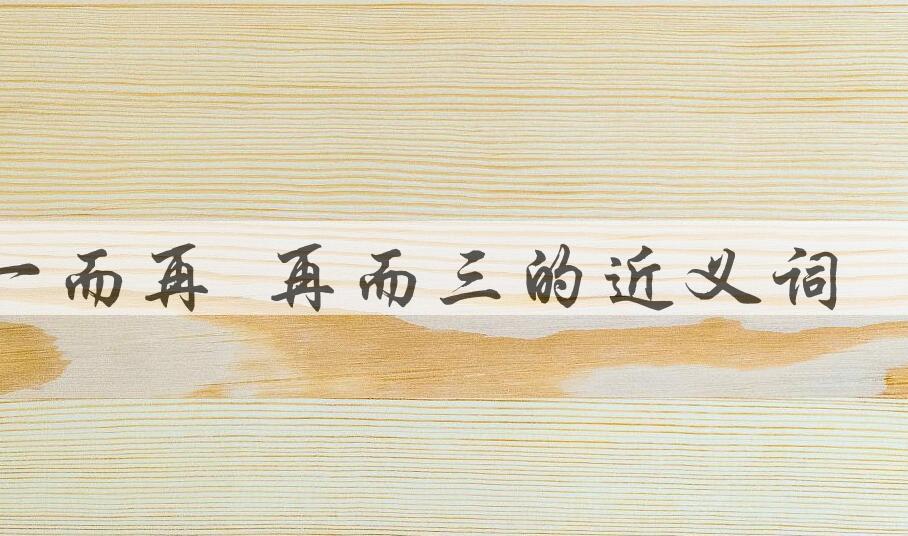 一而再 再而三的近义词